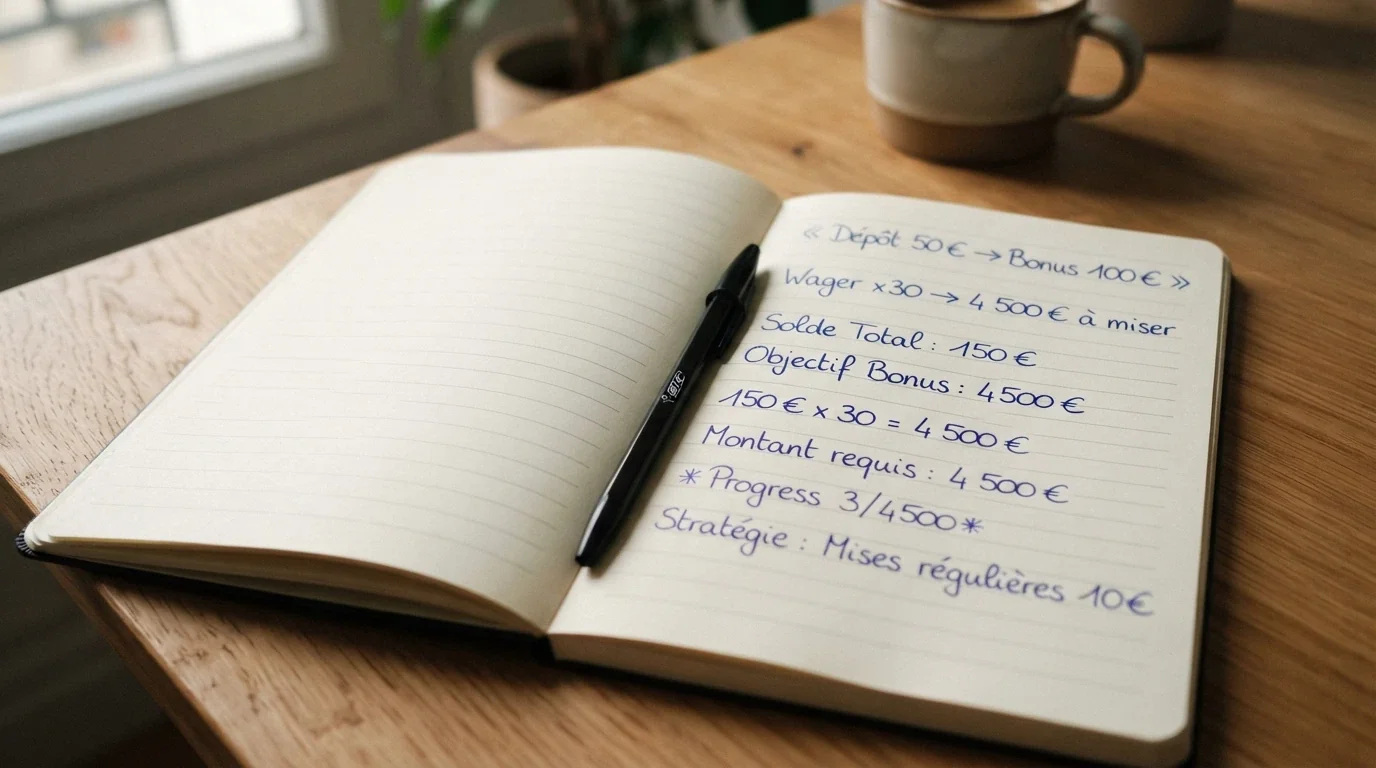 « Dépôt 50 € → Bonus 100 € »
Wager ×30 → 4 500 € à miser
Solde Total : 150 €
Objectif Bonus : 4500 €
150 € × 30 = 4 500 €
Montant requis : 4 500 €
* Progress 3/4500 *
Stratégie : Mises régulières 10 €
BIC